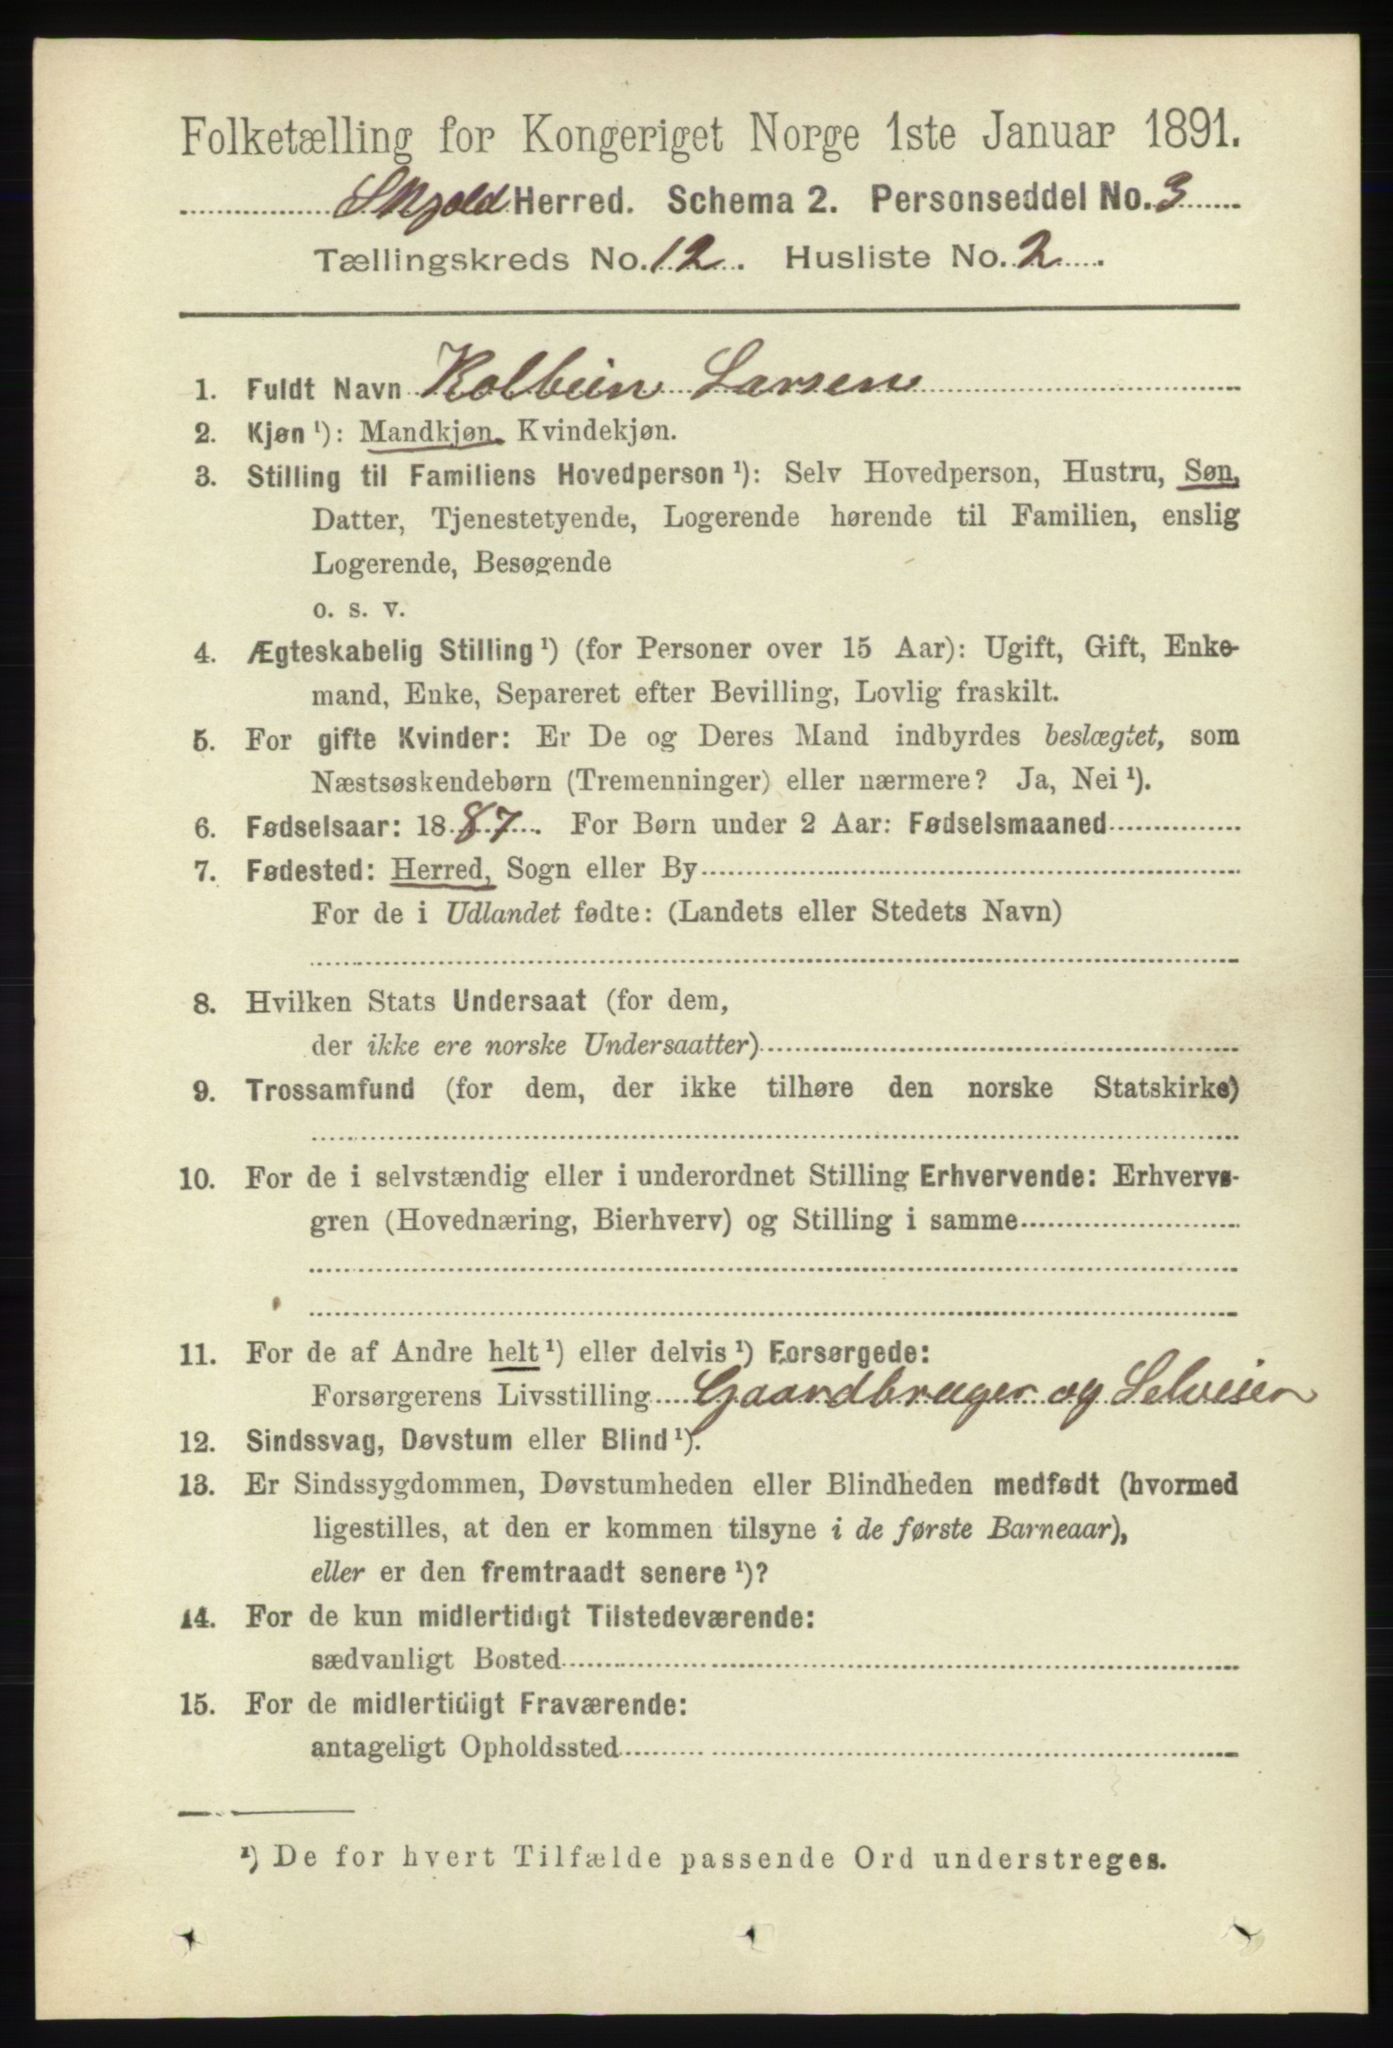 Folketælling for Kongeriget Norge 1ste Januar 1891.
Skjold Herred. Schema 2. Personseddel No. 3
Tællingskreds No. 12. Husliste No. 2.
1. Fuldt Navn Kolbein Larsen
2. Kjøn ¹): Mandkjøn, Kvindekjøn.
3. Stilling til Familiens Hovedperson ¹): Selv Hovedperson, Hustru, Søn,
Datter, Tjenestetyende, Logerende hørende til Familien, enslig
Logerende, Besøgende
o. s. v.
4. Ægteskabelig Stilling ¹) (for Personer over 15 Aar): Ugift, Gift, Enke-
mand, Enke, Separeret efter Bevilling, Lovlig fraskilt.
5. For gifte Kvinder: Er De og Deres Mand indbyrdes beslægtet, som
Næstsøskendebørn (Tremenninger) eller nærmere? Ja, Nei ¹).
6. Fødselsaar: 1887. For Børn under 2 Aar: Fødselsmaaned
7. Fødested: Herred, Sogn eller By
For de i Udlandet fødte: (Landets eller Stedets Navn)
8. Hvilken Stats Undersaat (for dem,
der ikke ere norske Undersaatter)
9. Trossamfund (for dem, der ikke tilhøre den norske Statskirke)
10. For de i selvstændig eller i underordnet Stilling Erhvervende: Erhvervs-
gren (Hovednæring, Bierhverv) og Stilling i samme
11. For de af Andre helt ¹) eller delvis ¹) Forsørgede:
Forsørgerens Livsstilling Gaardbruger og Selveier
12. Sindssvag, Døvstum eller Blind ¹).
13. Er Sindssygdommen, Døvstumheden eller Blindheden medfødt (hvormed
ligestilles, at den er kommen tilsyne i de første Barneaar),
eller er den fremtraadt senere ¹)?
14. For de kun midlertidigt Tilstedeværende:
sædvanligt Bosted
15. For de midlertidigt Fraværende:
antageligt Opholdssted
¹) De for hvert Tilfælde passende Ord understreges.